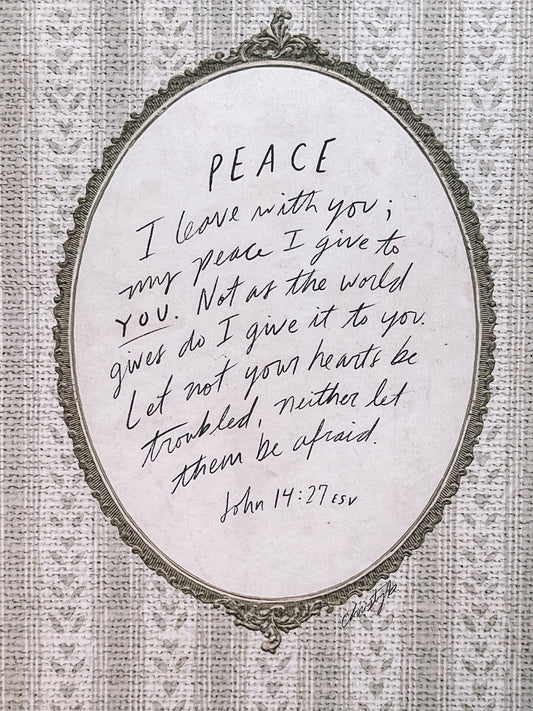 PEACE
I leave with you;
my peace I give to
YOU. Not as the world
gives do I give it to you.
Let not your hearts be
troubled, neither let
them be afraid.
John 14:27 ESV